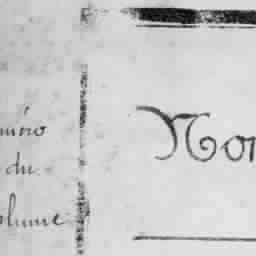 méro
du
olume
Nom